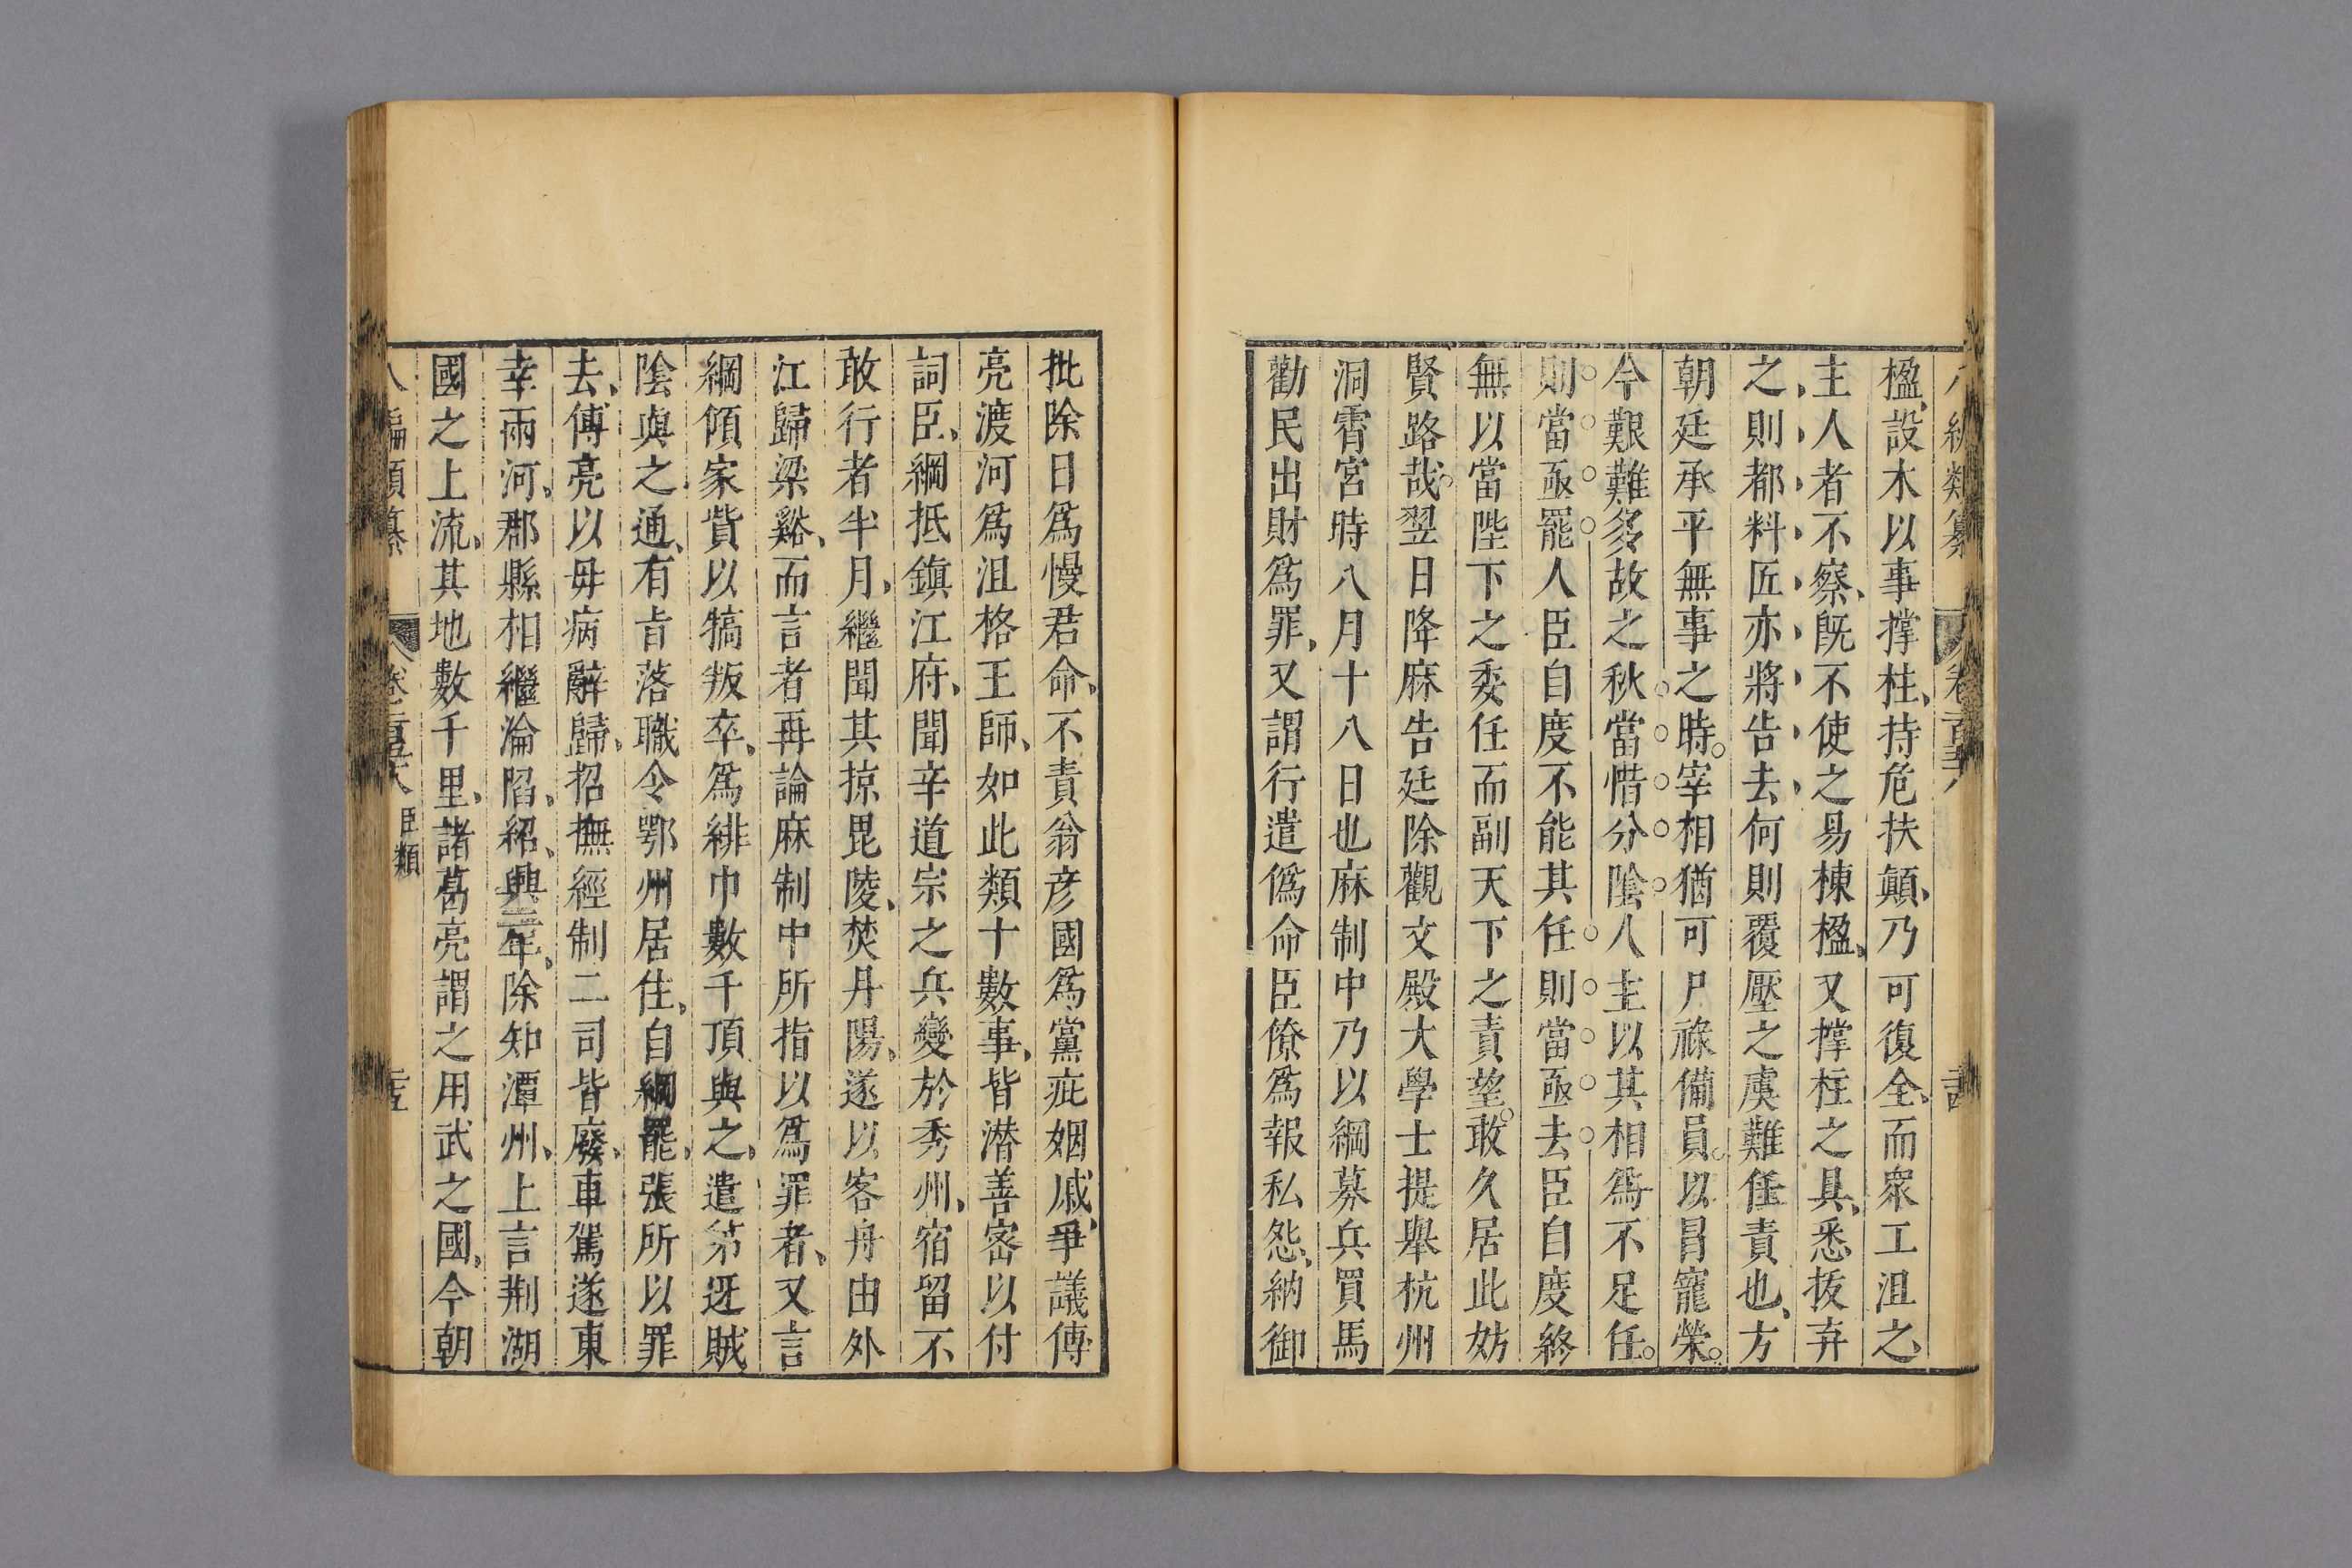 楹設木以事撑柱持危扶顛乃可復全而衆工沮之
主人者不察既不使之易棟楹又撑柱之具悉拔弃
之則都料匠亦將告去何則覆壓之虞難任責也方
朝廷承平無事之時宰相猶可尸祿備員以冒寵榮
今艱難多故之秋當惜分陰人主以其相爲不足任
則當亟罷人臣自度不能其任則當亟去臣自度終
無以當陛下之委任而副天下之責望敢久居此妨
賢路哉翌日降麻告廷除觀文殿大學士提舉杭州
洞霄宮時八月十八日也麻制中乃以綱募兵買馬
勸民出財爲罪又謂行遣僞命臣僚爲報私怨納御
批除日爲慢君命不責翁彦國爲黨疵姻戚爭議傅
亮渡河爲沮格王師如此類十數事皆潜善密以付
詞臣綱抵鎮江府聞辛道宗之兵變於秀州宿留不
敢行者半月繼聞其掠毘陵焚丹陽遂以客舟由外
江歸梁谿而言者再論麻制中所指以爲罪者又言
綱傾家貲以犒叛卒爲緋巾數千頂與之遣笫迓賊
陰與之通有旨落職令鄂州居住自綱罷張所以罪
去傅亮以毋病辭歸招撫經制二司皆廢車駕遂東
幸兩河郡縣相繼淪陷紹興二年除知潭州上言荆湖
國之上流其地數千里諸葛亮謂之用武之國今朝
八編類纂 卷 臣類